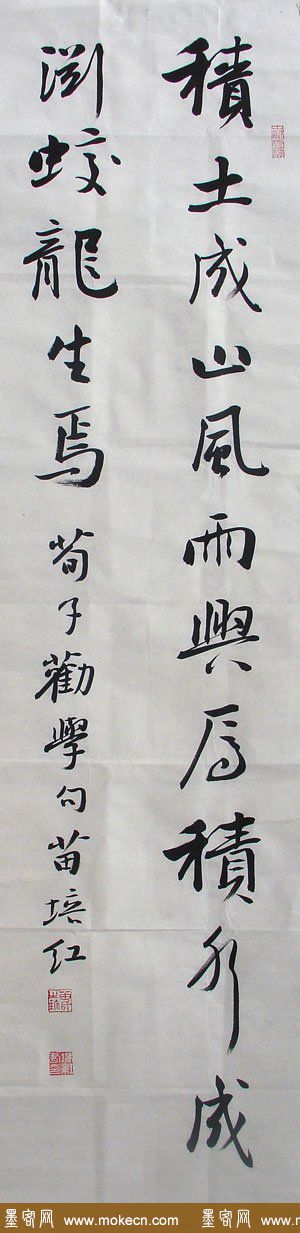 積土成山風雨興焉積水成
渊蛟龍生焉
荀子勸學句苗培红
墨客网 www.mokecn.com 墨客网 www.mokecn.com